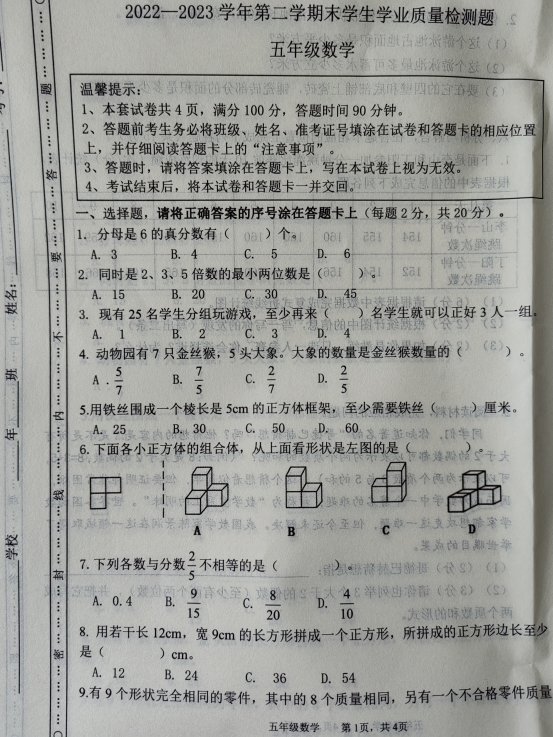 2022—2023学年第二学期末学生学业质量检测题
五年级数学
温馨提示:
1、本套试卷共 4 页，满分 100 分，答题时间 90 分钟。
2、答题前考生务必将班级、姓名、准考证号填涂在试卷和答题卡的相应位置
上，并仔细阅读答题卡上的“注意事项”。
3、答题时，请将答案填涂在答题卡上，写在本试卷上视为无效。
4、考试结束后，将本试卷和答题卡一并交回。
一、选择题，请将正确答案的序号涂在答题卡上（每题 2 分，共 20 分）。
1. 分母是 6 的真分数有（ ）个。
A. 3 B. 4 C. 5 D. 6
2. 同时是 2、3、5 倍数的最小两位数是（ ）。
A. 15 B. 20 C. 30 D. 45
3. 现有 25 名学生分组玩游戏，至少再来（ ）名学生就可以正好 3 人一组。
A. 1 B. 2 C. 3 D. 4
4. 动物园有 7 只金丝猴，5 头大象。大象的数量是金丝猴数量的（ ）。
A. 5/7 B. 7/5 C. 2/7 D. 2/5
5.用铁丝围成一个棱长是 5cm 的正方体框架，至少需要铁丝（ ）厘米。
A. 25 B. 30 C. 50 D. 60
6. 下面各小正方体的组合体，从上面看形状是左图的是（ ）
A B C D
7. 下列各数与分数 2/5 不相等的是（ ）。
A. 0.4 B. 9/15 C. 8/20 D. 4/10
8. 用若干长 12cm，宽 9cm 的长方形拼成一个正方形，所拼成的正方形边长至少
是（ ）cm。
A. 12 B. 24 C. 36 D. 54
9.有 9 个形状完全相同的零件，其中的 8 个质量相同，另有一个不合格零件质量
五年级数学 第 1页，共 4页
学校 年 班 姓名:
密 封 线 内 不 要 答 题